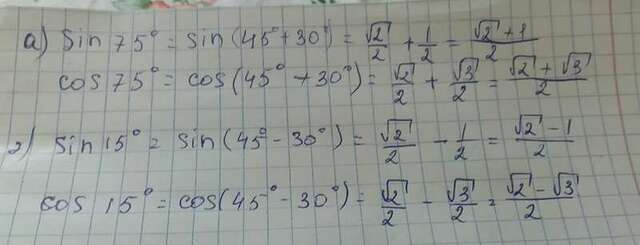 а) sin 75° = sin(45° + 30°) = √2/2 + 1/2 = (√2 + 1)/2
cos 75° = cos(45° + 30°) = √2/2 + √3/2 = (√2 + √3)/2
г) sin 15° = sin(45° - 30°) = √2/2 - 1/2 = (√2 - 1)/2
cos 15° = cos(45° - 30°) = √2/2 - √3/2 = (√2 - √3)/2